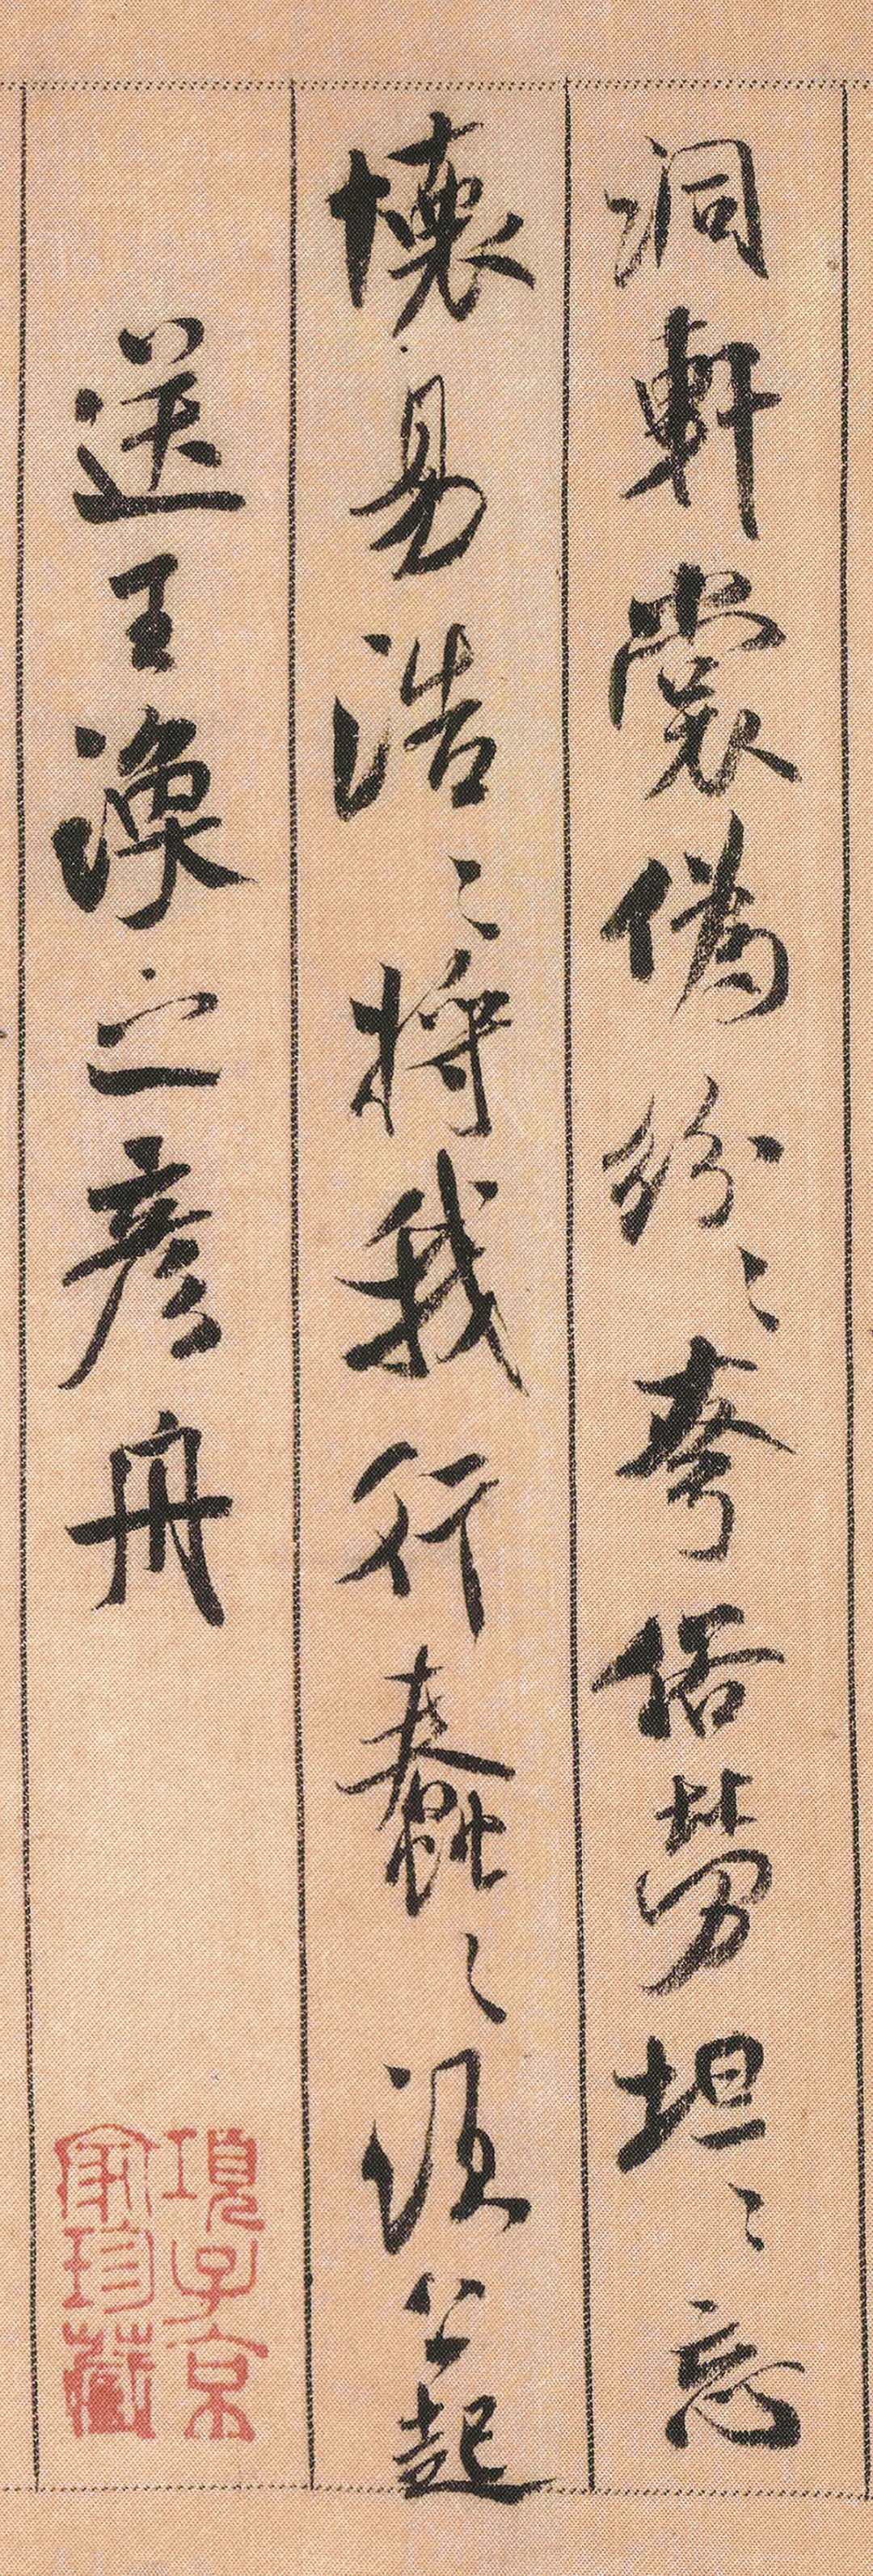 洞軒裳偽紛〻夸俗勞坦〻忘
懷易浩〻將我行蠢〻須公起
送王渙之彥舟
項子京
家珍藏